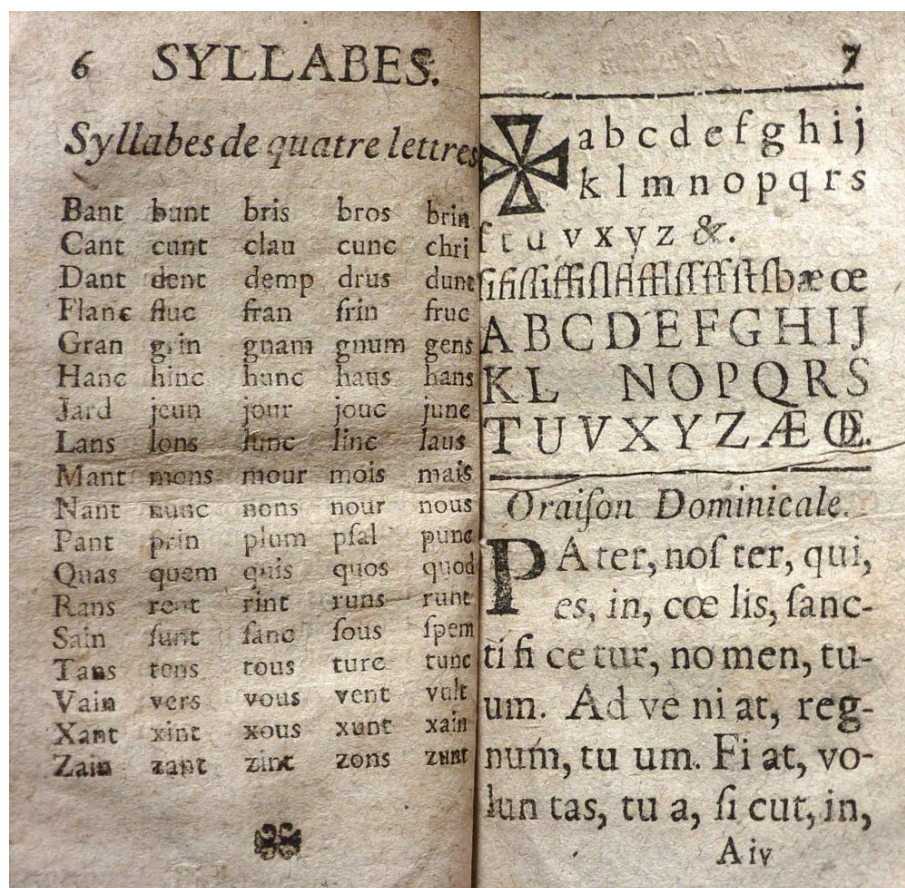 6 SYLLABES.
Syllabes de quatre lettres
Bant bunt bris bros brin
Cant cunt clau cunc chri
Dant dent demp drus dunt
Flanc fluc fran frin fruc
Gran grin gnam gnum gens
Hanc hinc hunc haus hans
Jard jeun jour jouc june
Lans lons lunc linc laus
Mant mons mour mois mais
Nant nunc nons nour nous
Pant prin plum pſal punc
Quas quem quis quos quod
Rans rent rint runs runt
Sain ſunt ſanc ſous ſpem
Tans tons tous turc tunc
Vain vers vous vent vult
Xant xint xous xunt xain
Zain zant zint zons zunt
7
✠ a b c d e f g h i j
k l m n o p q r s
ſ t u v x y z &.
æ œ
A B C D E F G H I J
K L N O P Q R S
T U V X Y Z Æ Œ.
Oraiſon Dominicale.
PAter, noſ ter, qui,
es, in, cœ lis, ſanc-
ti fi ce tur, no men, tu-
um. Ad ve ni at, reg-
num, tu um. Fi at, vo-
lun tas, tu a, ſi cut, in,
A iv